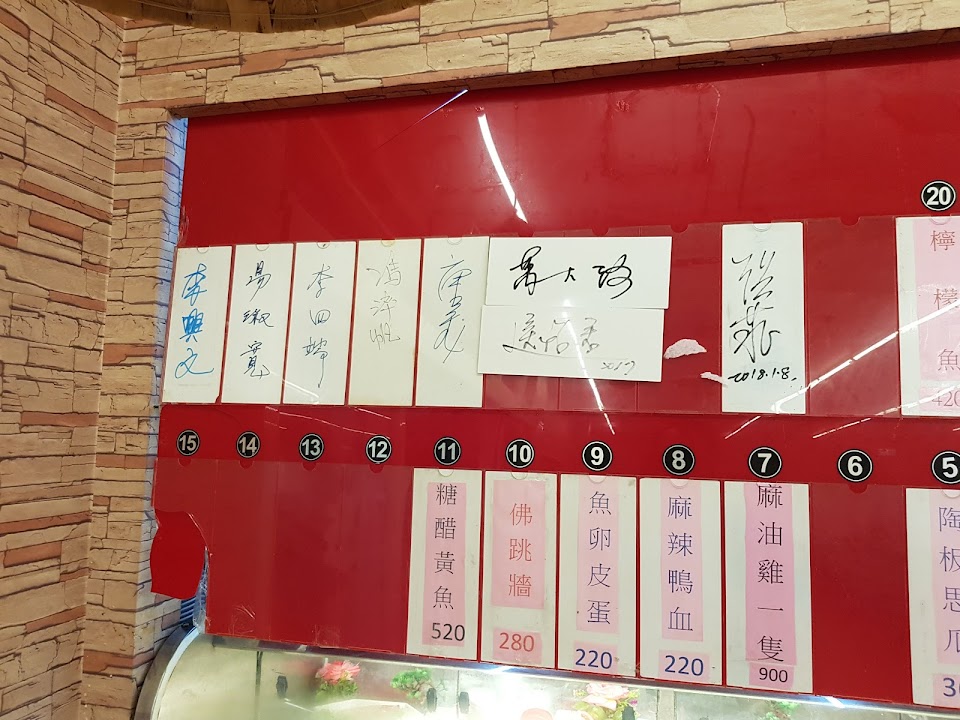 李興文
湯淑寬
李四端
唐
葉大路
2017
2018.1.8.
20
檸檬魚
420
15
14
13
12
11
10
9
8
7
6
5
糖醋黃魚
520
佛跳牆
280
魚卵皮蛋
220
麻辣鴨血
220
麻油雞一隻
900
陶板思瓜